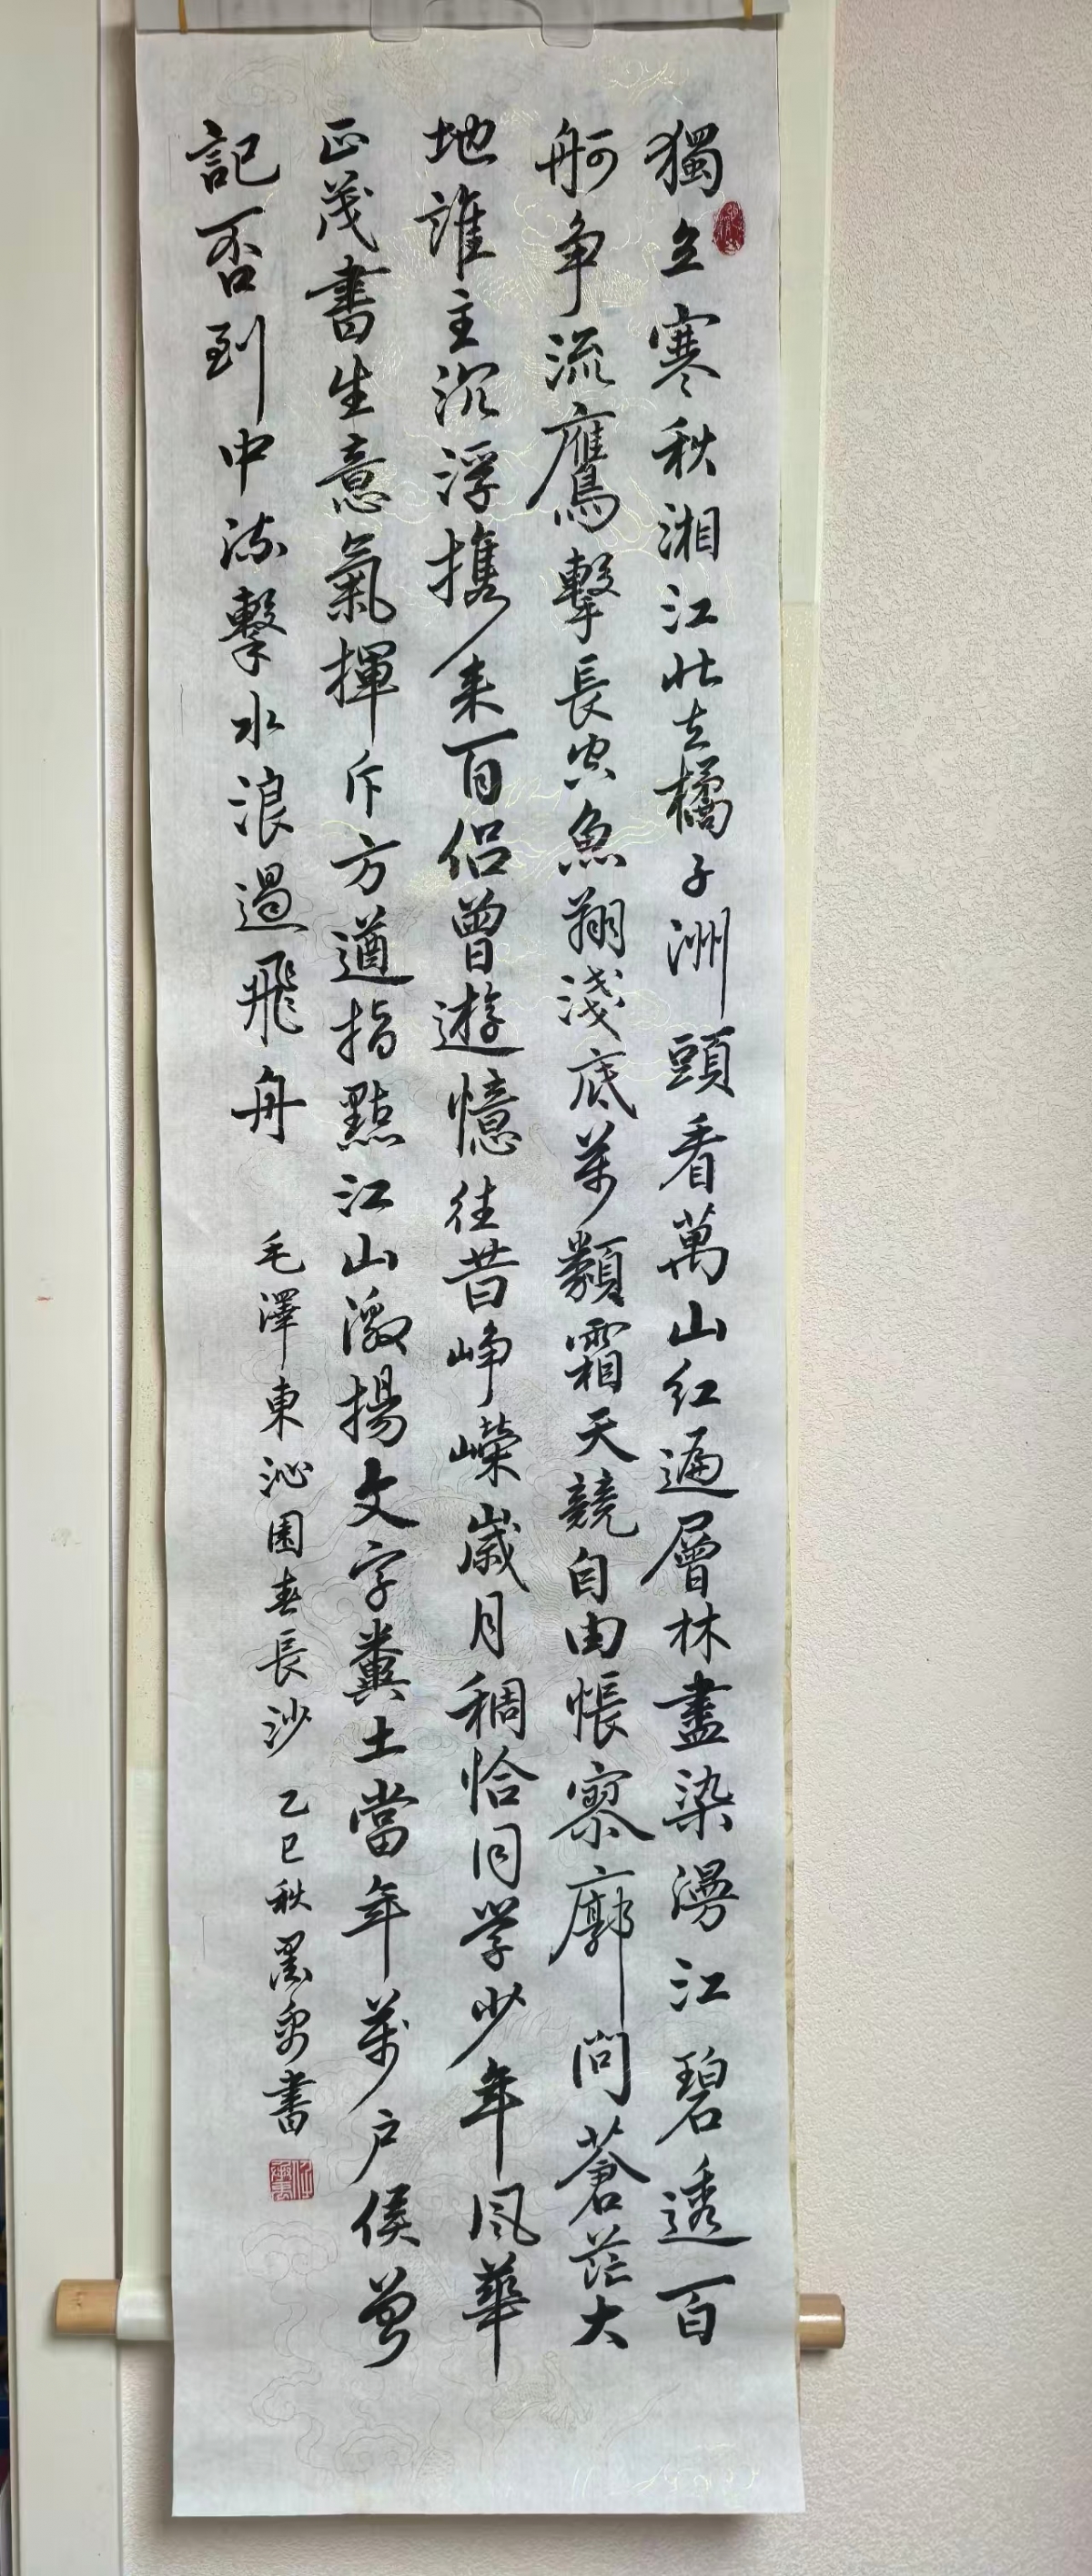 獨立寒秋湘江北去橘子洲頭看萬山红遍層林盡染漫江碧透百
舸争流鷹擊長空魚翔淺底萬類霜天競自由悵寥廓問蒼茫大
地誰主沉浮携来百侣曾遊憶往昔崢嶸歲月稠恰同學少年风華
正茂書生意氣揮斥方遒指點江山激揚文字糞土當年萬户侯曾
記否到中流擊水浪遏飛舟
毛澤東沁園春長沙 乙巳秋 書